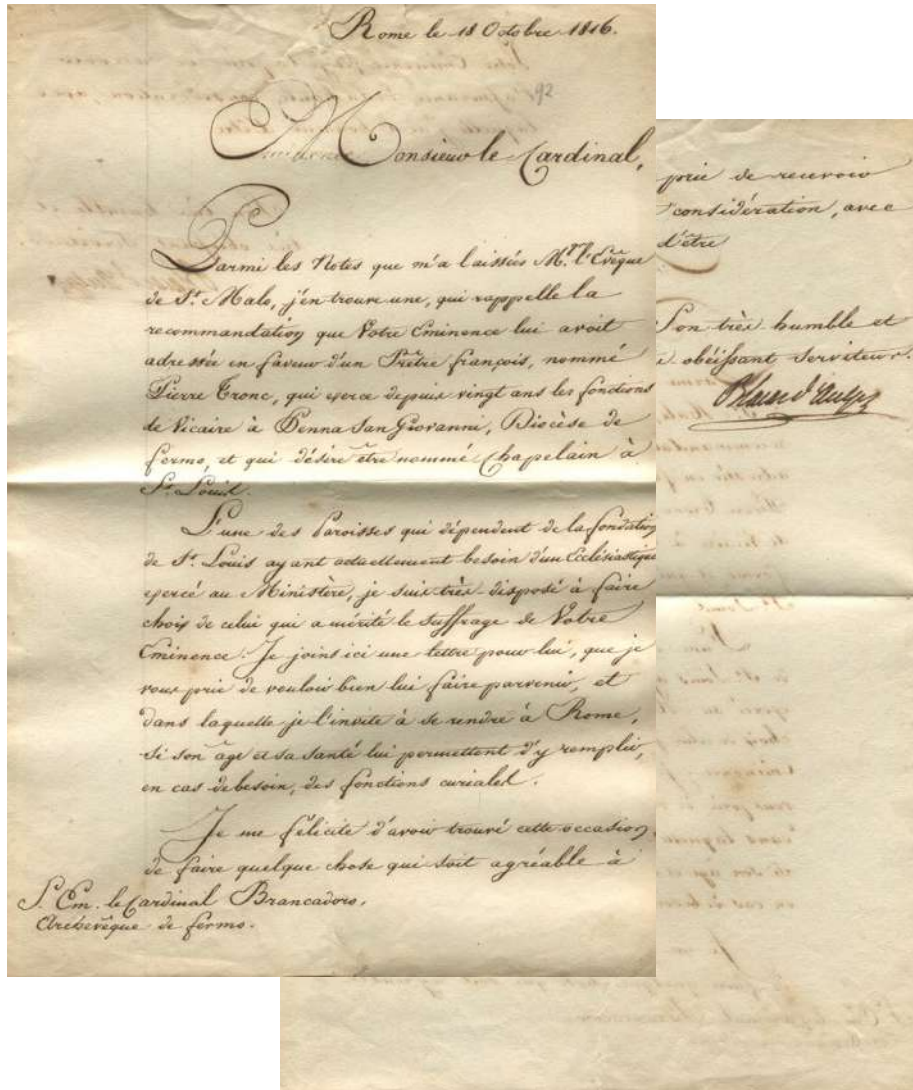 Rome le 18 Octobre 1816.
92
Monsieur le Cardinal,
Parmi les Notes que m'a laissées Mgr. l'Evêque
de St. Malo, j'en trouve une, qui rappelle la
recommandation que Votre Eminence lui avoit
adressée en faveur d'un Prêtre françois, nommé
Pierre Tronc, qui exerce depuis vingt ans les fonctions
de Vicaire à Penna San Giovanni, Diocèse de
fermo, et qui désire être nommé Chapelain à
St. Louis.
L'une des Paroisses qui dépendent de la fondation
de St. Louis ayant actuellement besoin d'un Ecclésiastique
exercé au Ministère, je suis très-disposé à faire
choix de celui qui a mérité le suffrage de Votre
Eminence. Je joins ici une lettre pour lui, que je
vous prie de vouloir bien lui faire parvenir, et
dans laquelle je l'invite à se rendre à Rome,
si son âge et sa santé lui permettent d'y remplir,
en cas de besoin, des fonctions curiales.
Je me félicite d'avoir trouvé cette occasion
de faire quelque chose qui soit agréable à
S. Em. le Cardinal Brancadoro.
Archevêque de fermo.
prie de recevoir
considération, avec
d'être
Son très humble et
obéissant serviteur.